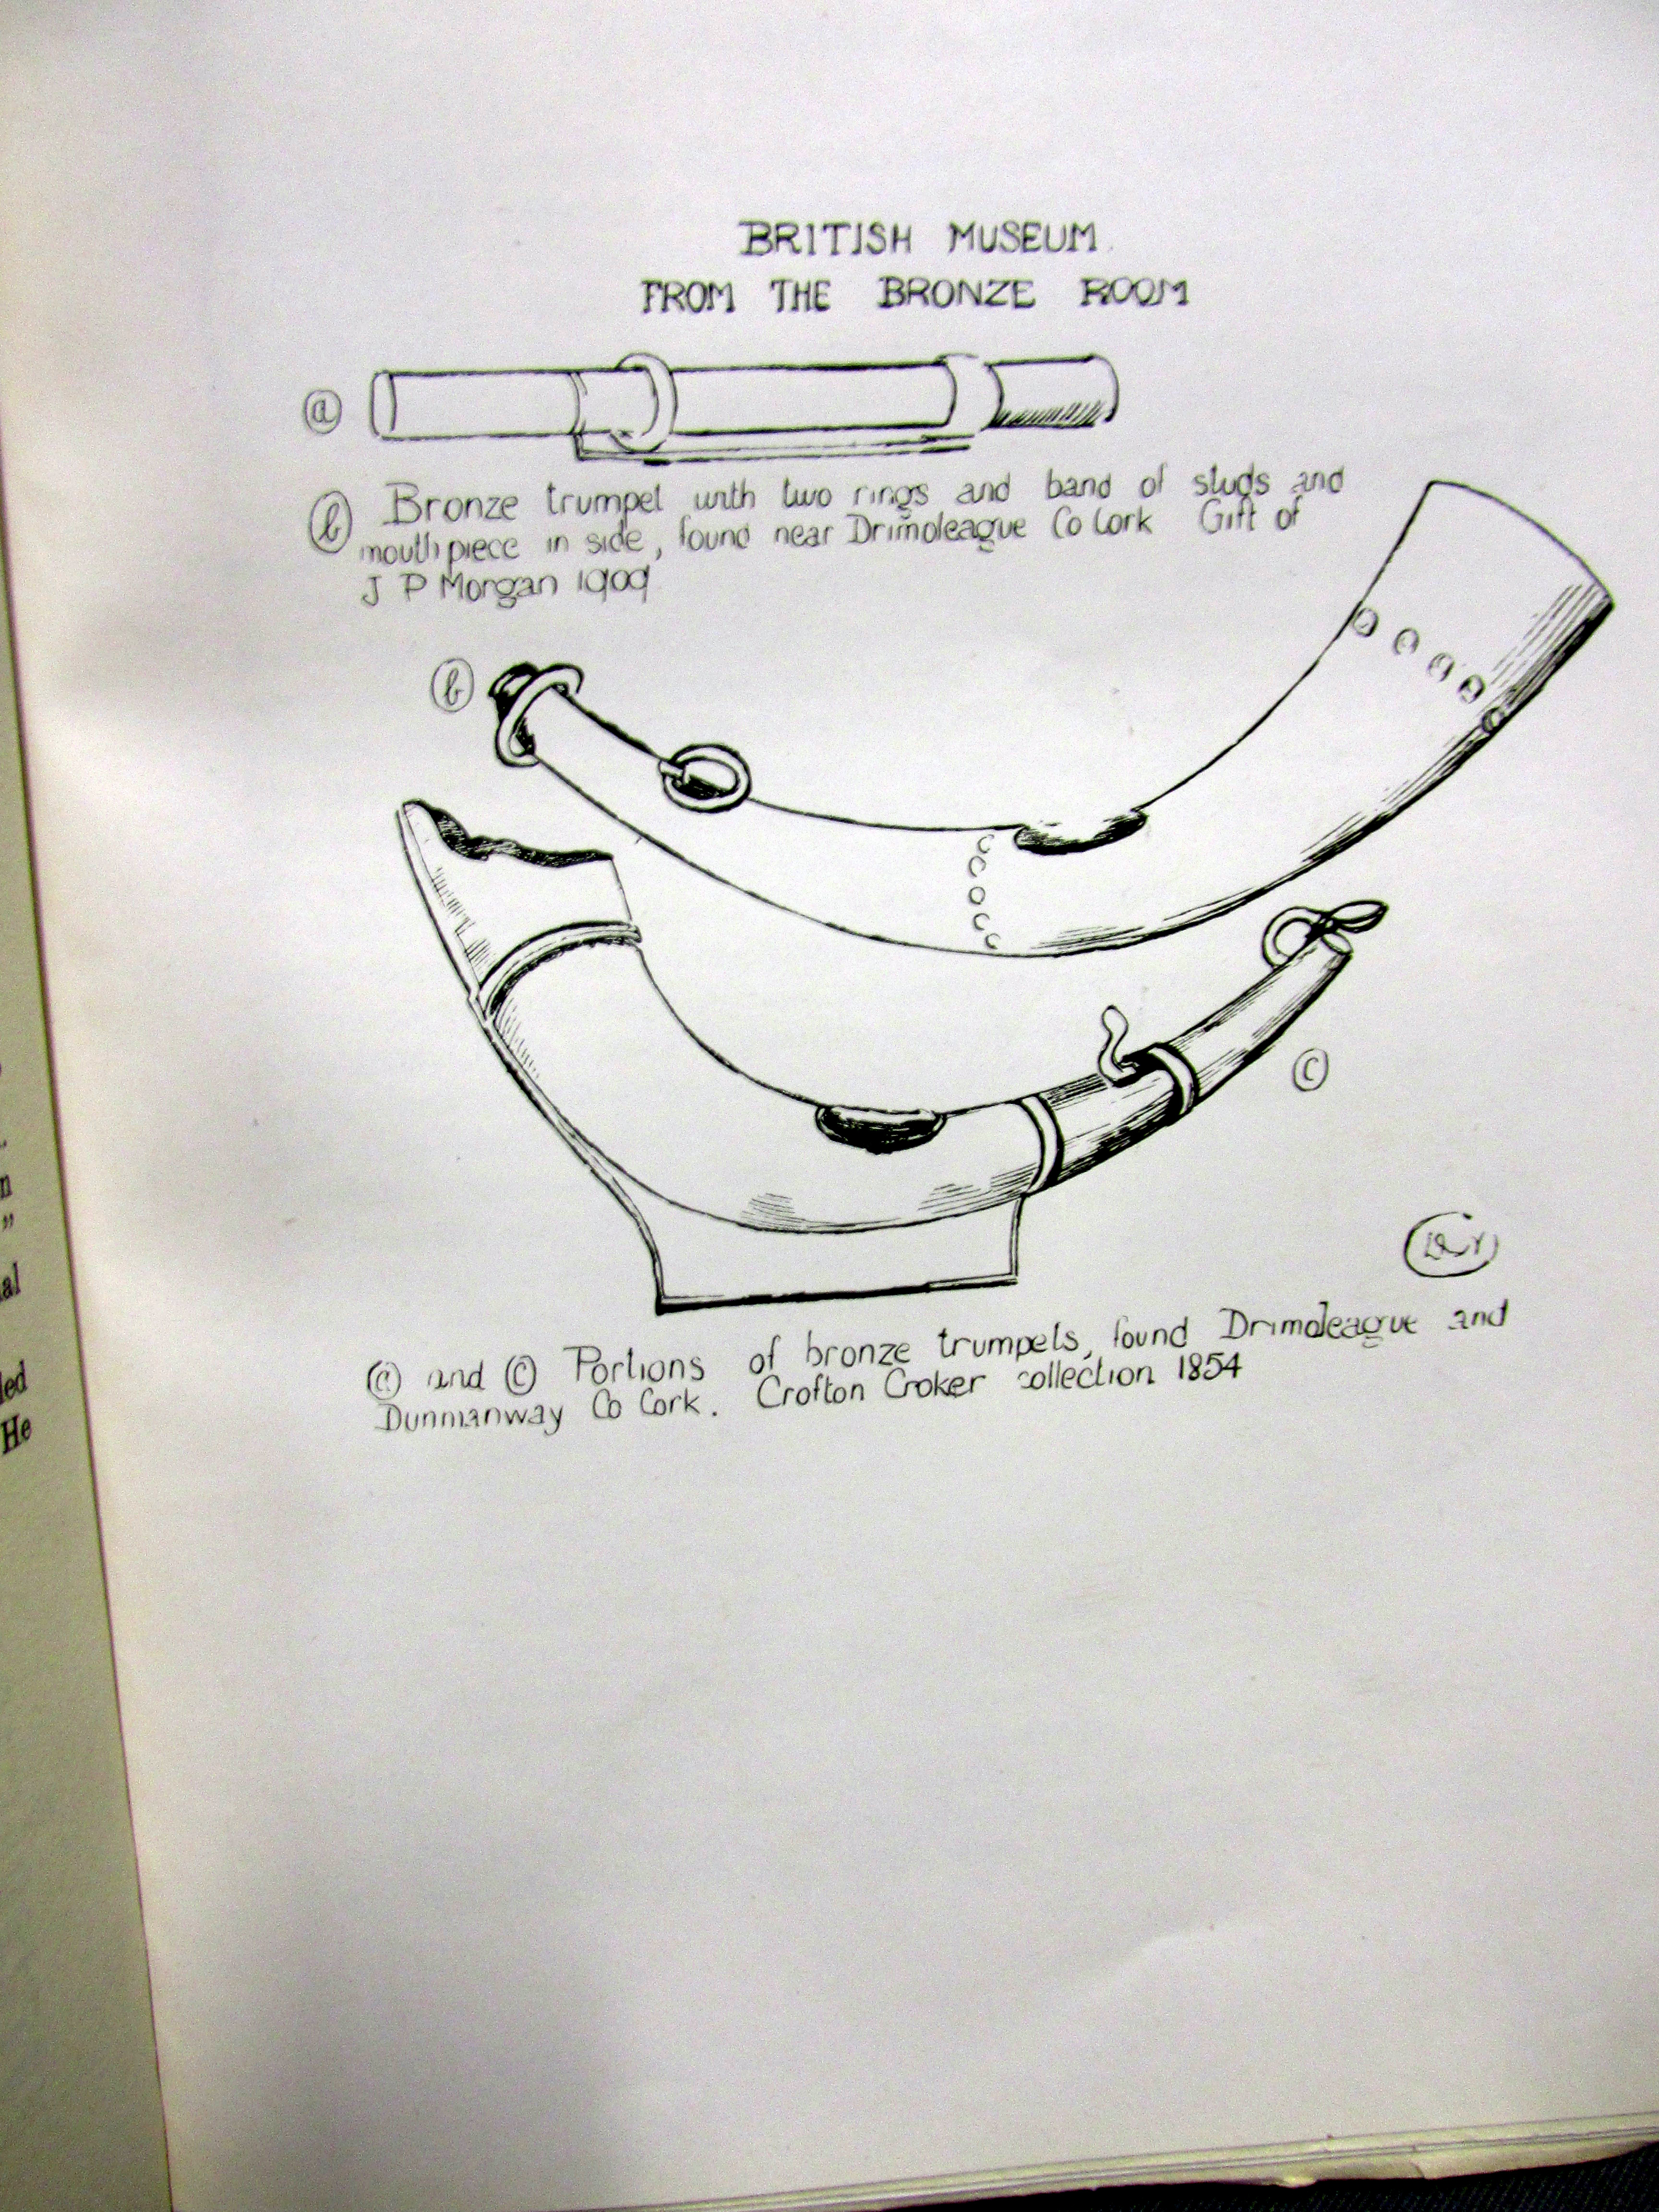 BRITISH MUSEUM
FROM THE BRONZE ROOM
(a)
(b) Bronze trumpet with two rings and band of studs and
mouthpiece in side, found near Drimoleague Co Cork Gift of
J P Morgan 1909
(b)
(c)
(a) and (c) Portions of bronze trumpets, found Drimoleague and
Dunmanway Co Cork. Crofton Croker collection 1854
n
"
al
led
He